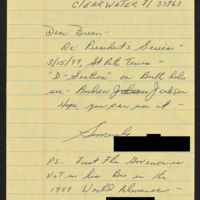 CLEARWATER Fl 33963
Dear Brian -
Re: President's Series -
8/15/99, St Pete Times
"D-Section" on Both Sides
- Andrew Jackson
Hope, you can use it -
Sincerely
PS: First Fla Governor is
Not in his Bio in the
1999 World Almanac -